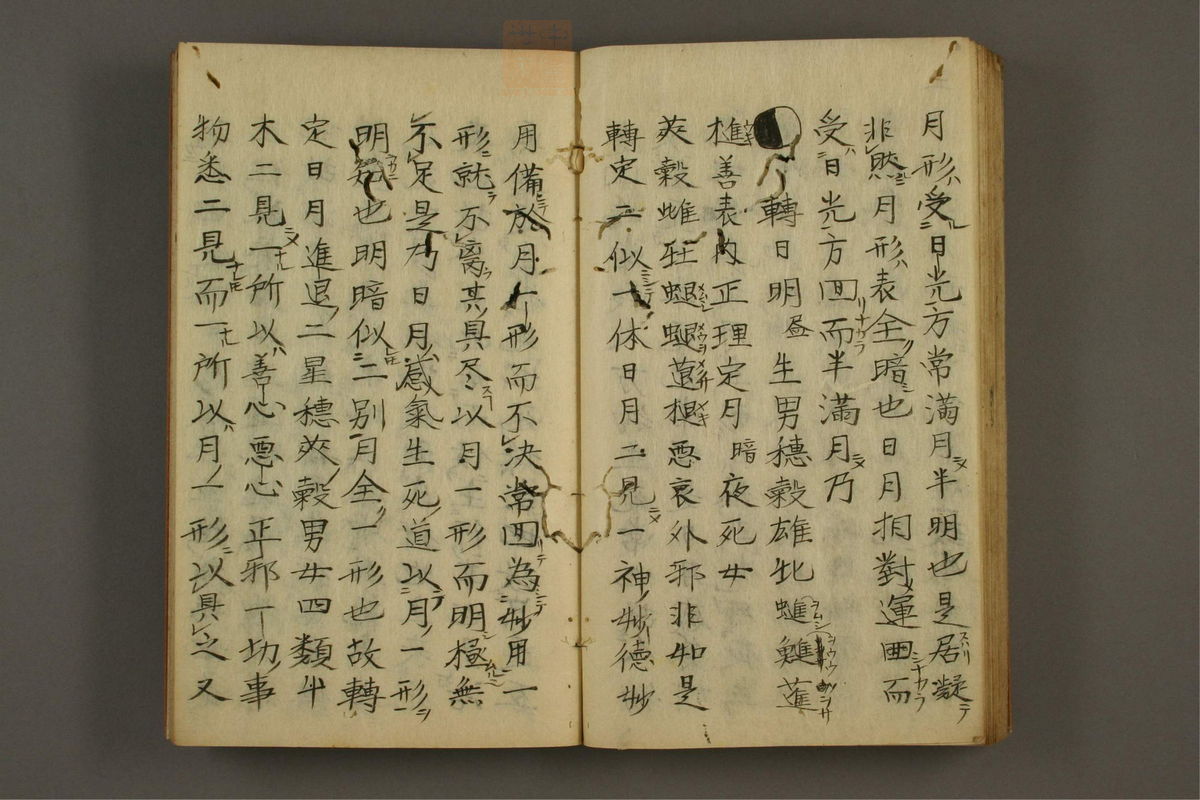 月形受日光方常満月半明也是居凝
非然月形表全暗也日月相對運回而
受日光方回而半満月乃
轉日明昼生男穗穀雄牡
善表内正理定月暗夜死女
莢穀雌牝 悪哀外邪非如是
轉定二似一体日月二見一神妙德妙
用備於月一形而不決常回為妙用一
形就不离其具尽以月一形而明極無
不足是乃日月感氣生死道以月一形
明 也明暗似二別月全一形也故轉
定日月進退二星穗莢穀男女四類牛
木二見一所以善心悪心正邪一切事
物悉二見而一所以月一形以具之又